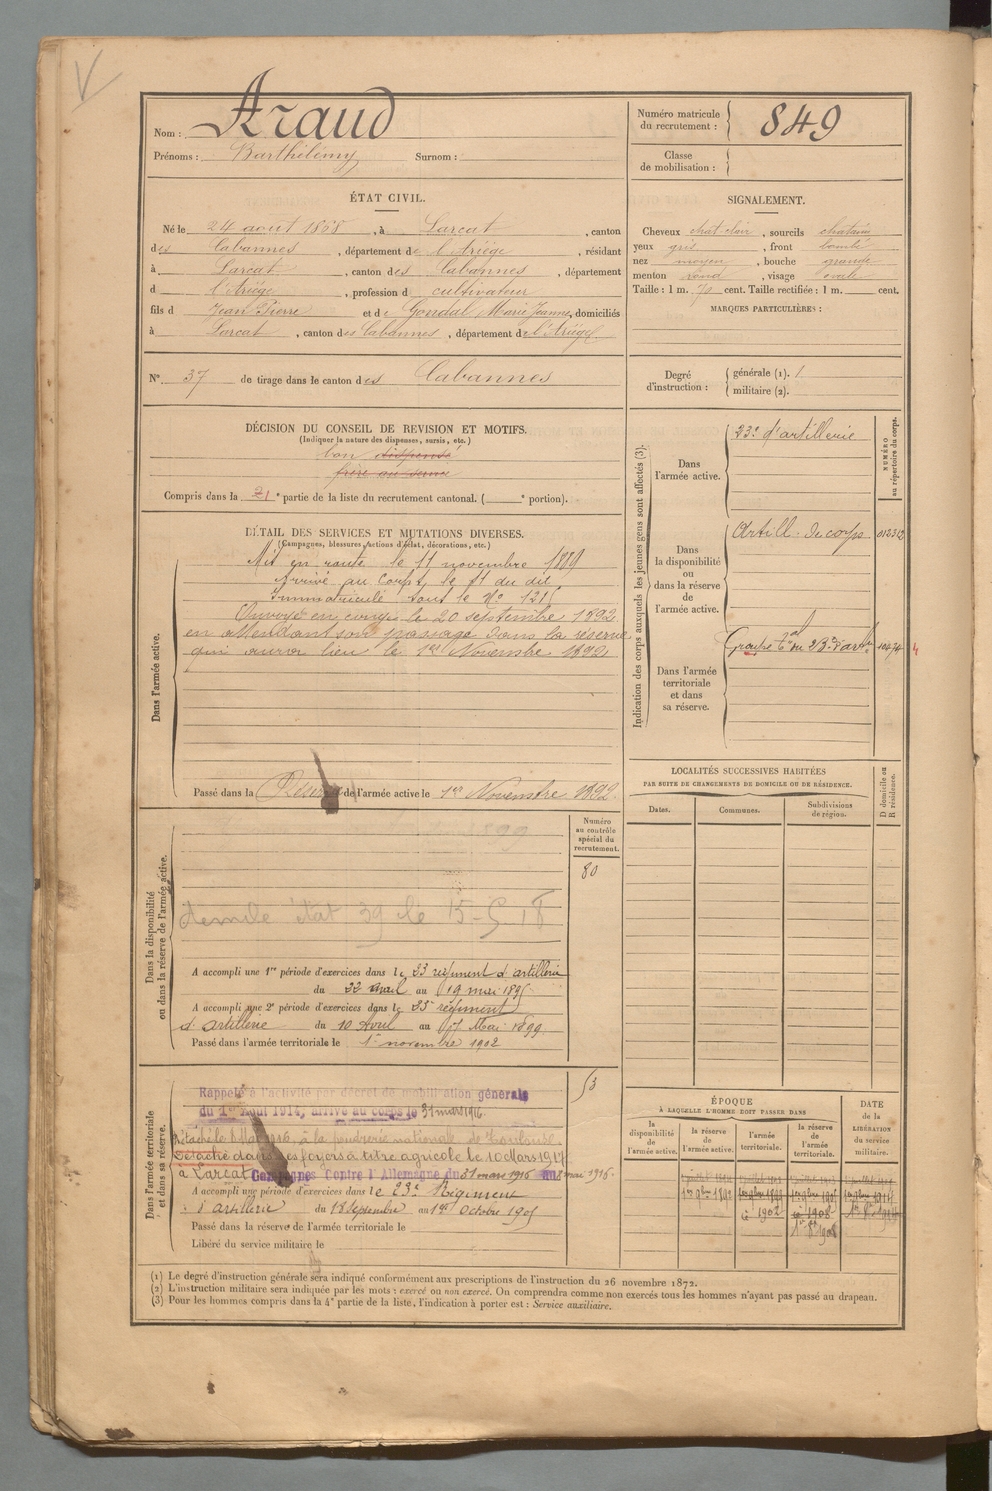 Nom : Araud
Prénoms : Barthélémy Surnom :
Numéro matricule du recrutement : 849
Classe de mobilisation :
ÉTAT CIVIL.
Né le 24 août 1868, à Larcat, canton
des Cabannes, département de l'Ariège, résidant
à Larcat, canton des Cabannes, département
d l'Ariège, profession d cultivateur
fils d Jean Pierre et de Gourdal Marie Jeanne, domiciliés
à Larcat, canton des Cabannes, département de l'Ariège
SIGNALEMENT.
Cheveux chat clair, sourcils chatains
yeux gris, front bombé
nez moyen, bouche grande
menton rond, visage ovale
Taille : 1 m. 70 cent. Taille rectifiée : 1 m. cent.
MARQUES PARTICULIÈRES :
N° 37 de tirage dans le canton des Cabannes
Degré d'instruction : générale (1). 1
militaire (2).
DÉCISION DU CONSEIL DE REVISION ET MOTIFS.
(Indiquer la nature des dispenses, sursis, etc.)
bon dispensé
frère au service
Compris dans la partie de la liste du recrutement cantonal. ( e portion).
DÉTAIL DES SERVICES ET MUTATIONS DIVERSES.
(Campagnes, blessures, actions d'éclat, décorations, etc.)
Dans l'armée active.
Mis en route le 11 novembre 1889
Arrivé au Corps, le 11 du dit
Immatriculé sous le N° 1215
Envoyé en congé le 20 septembre 1892
en attendant son passage dans la réserve
qui aura lieu le 1er Novembre 1892
Passé dans la Réserve de l'armée active le 1er Novembre 1892.
Indication des corps auxquels les jeunes gens sont affectés (3).
NUMÉRO au répertoire du corps.
Dans l'armée active.
23e d'artillerie
Dans la disponibilité ou dans la réserve de l'armée active.
Artill. du corps
Dans l'armée territoriale et dans sa réserve.
Groupe tal du 23e d'art.
LOCALITÉS SUCCESSIVES HABITÉES
PAR SUITE DE CHANGEMENTS DE DOMICILE OU DE RÉSIDENCE.
Dates. Communes. Subdivisions de région. D domicile ou R résidence.
Dans la disponibilité ou dans la réserve de l'armée active.
Numéro au contrôle spécial du recrutement.
80
1899
demde état 39 le 15-5 18
A accompli une 1re période d'exercices dans le 23 régiment d'artillerie
du 22 avril au 19 mai 1895
A accompli une 2e période d'exercices dans le 23e régiment
d'artillerie du 10 Avril au 7 Mai 1899
Passé dans l'armée territoriale le 1er novembre 1902
Dans l'armée territoriale et dans sa réserve.
53
Rappelé à l'activité par décret de mobilisation générale
du 1er Août 1914, arrivé au corps le 31 mars 1916.
Détaché le 8 Mai 1916, à la poudrerie nationale de Toulouse.
Détaché dans ses foyers à titre agricole le 10 Mars 1917
à Larcat Campagnes Contre l'Allemagne du 31 mars 1916 au 8 mai 1916.
A accompli une période d'exercices dans le 23e Régiment
d'artillerie du 18 Septembre au 1er Octobre 1905
Passé dans la réserve de l'armée territoriale le
Libéré du service militaire le
ÉPOQUE
À LAQUELLE L'HOMME DOIT PASSER DANS
la disponibilité de l'armée active.
la réserve de l'armée active. 1er 9bre 1892
l'armée territoriale. 1902
la réserve de l'armée territoriale. 1908
DATE de la LIBÉRATION du service militaire.
(1) Le degré d'instruction générale sera indiqué conformément aux prescriptions de l'instruction du 26 novembre 1872.
(2) L'instruction militaire sera indiquée par les mots : exercé ou non exercé. On comprendra comme non exercés tous les hommes n'ayant pas passé au drapeau.
(3) Pour les hommes compris dans la 4e partie de la liste, l'indication à porter est : Service auxiliaire.